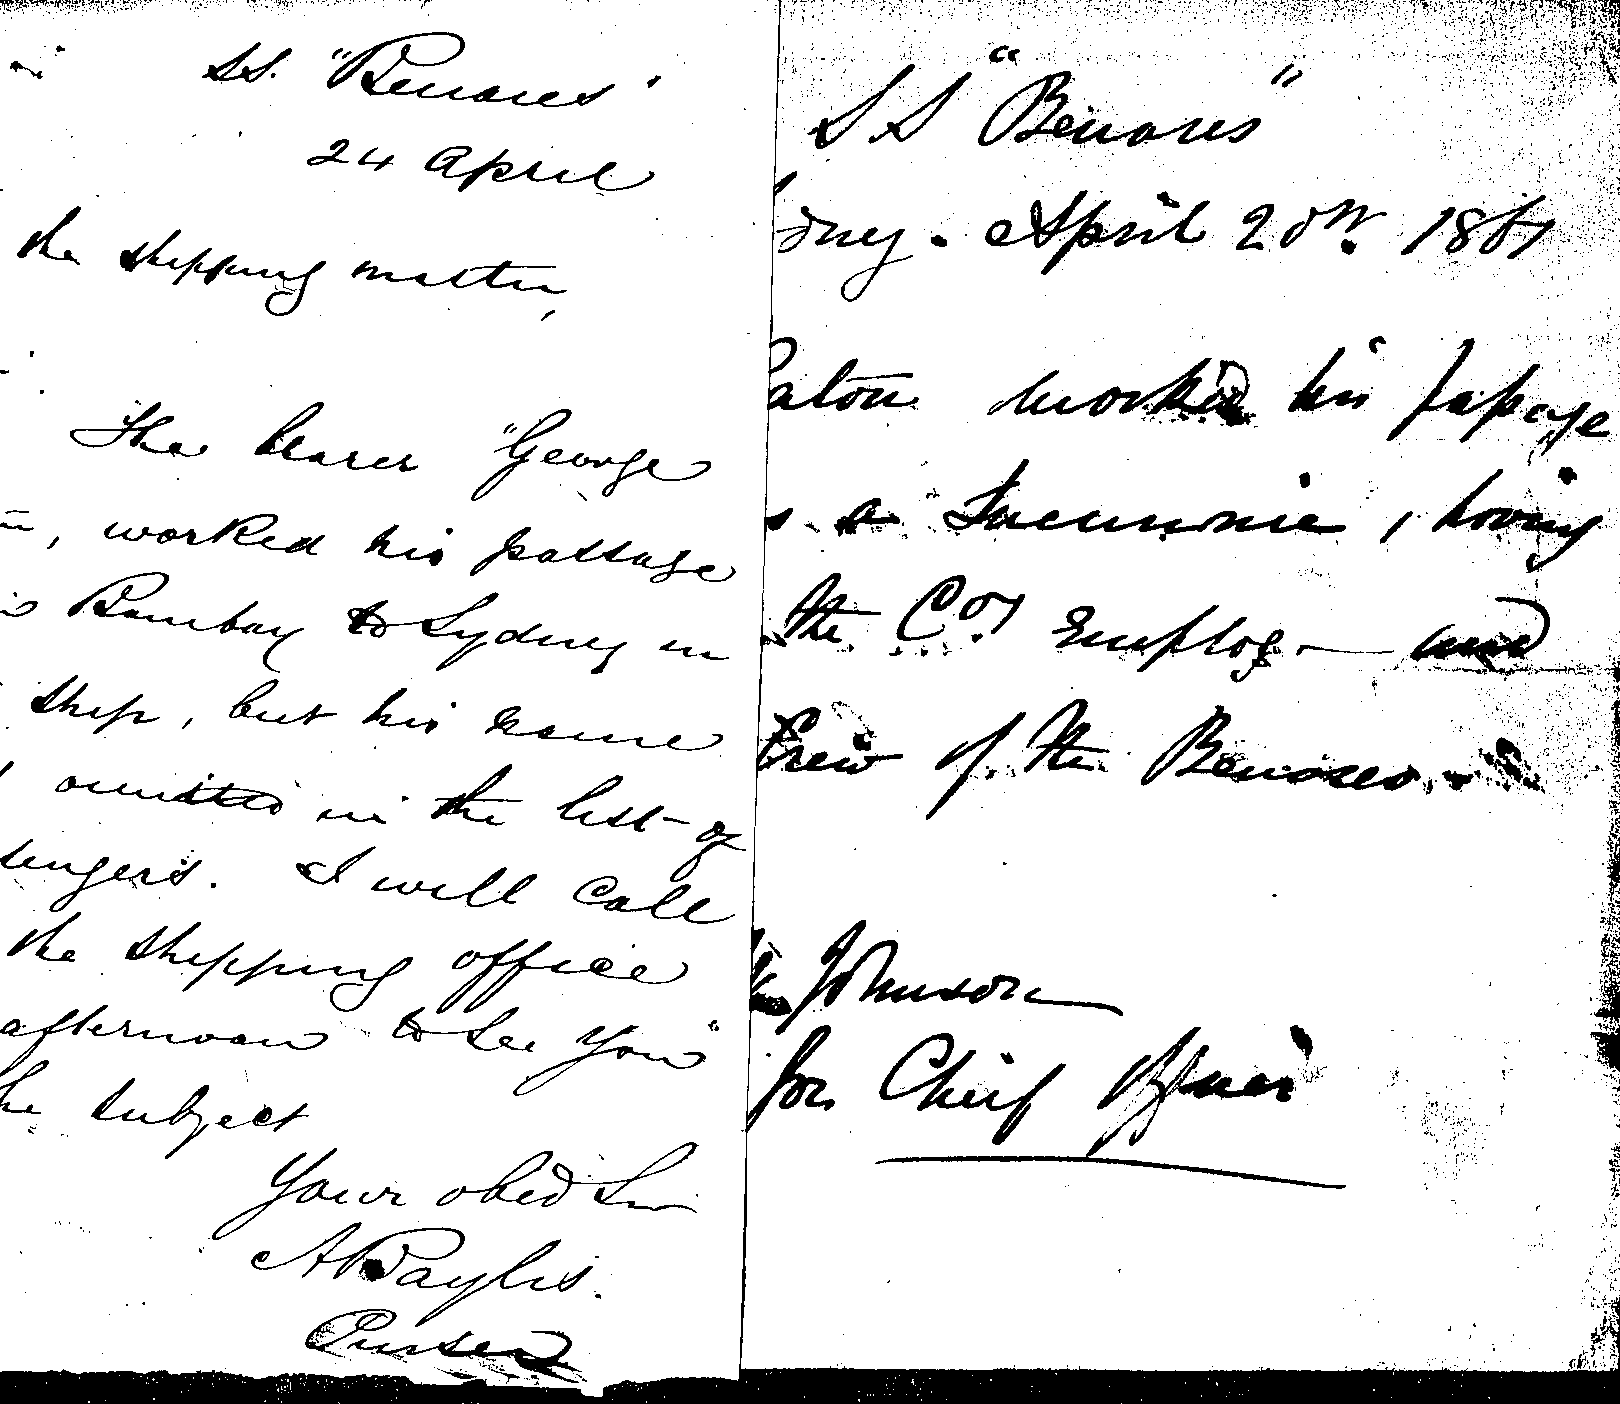 S.S. "Benares"
24 April
the shipping master,
The bearer "George
, worked his passage
Bombay to Sydney in
ship, but his name
omitted in the list of
sengers. I will call
the shipping office
afternoon to see you
he subject
Your obed Sr
A Baylis.
Purser
S S "Benares"
dney. April 20th. 1867
aton worked his passage
s a Fireman, having
the Coy Employ - and
Crew of the Benares.
Johnson
for Chief Officer